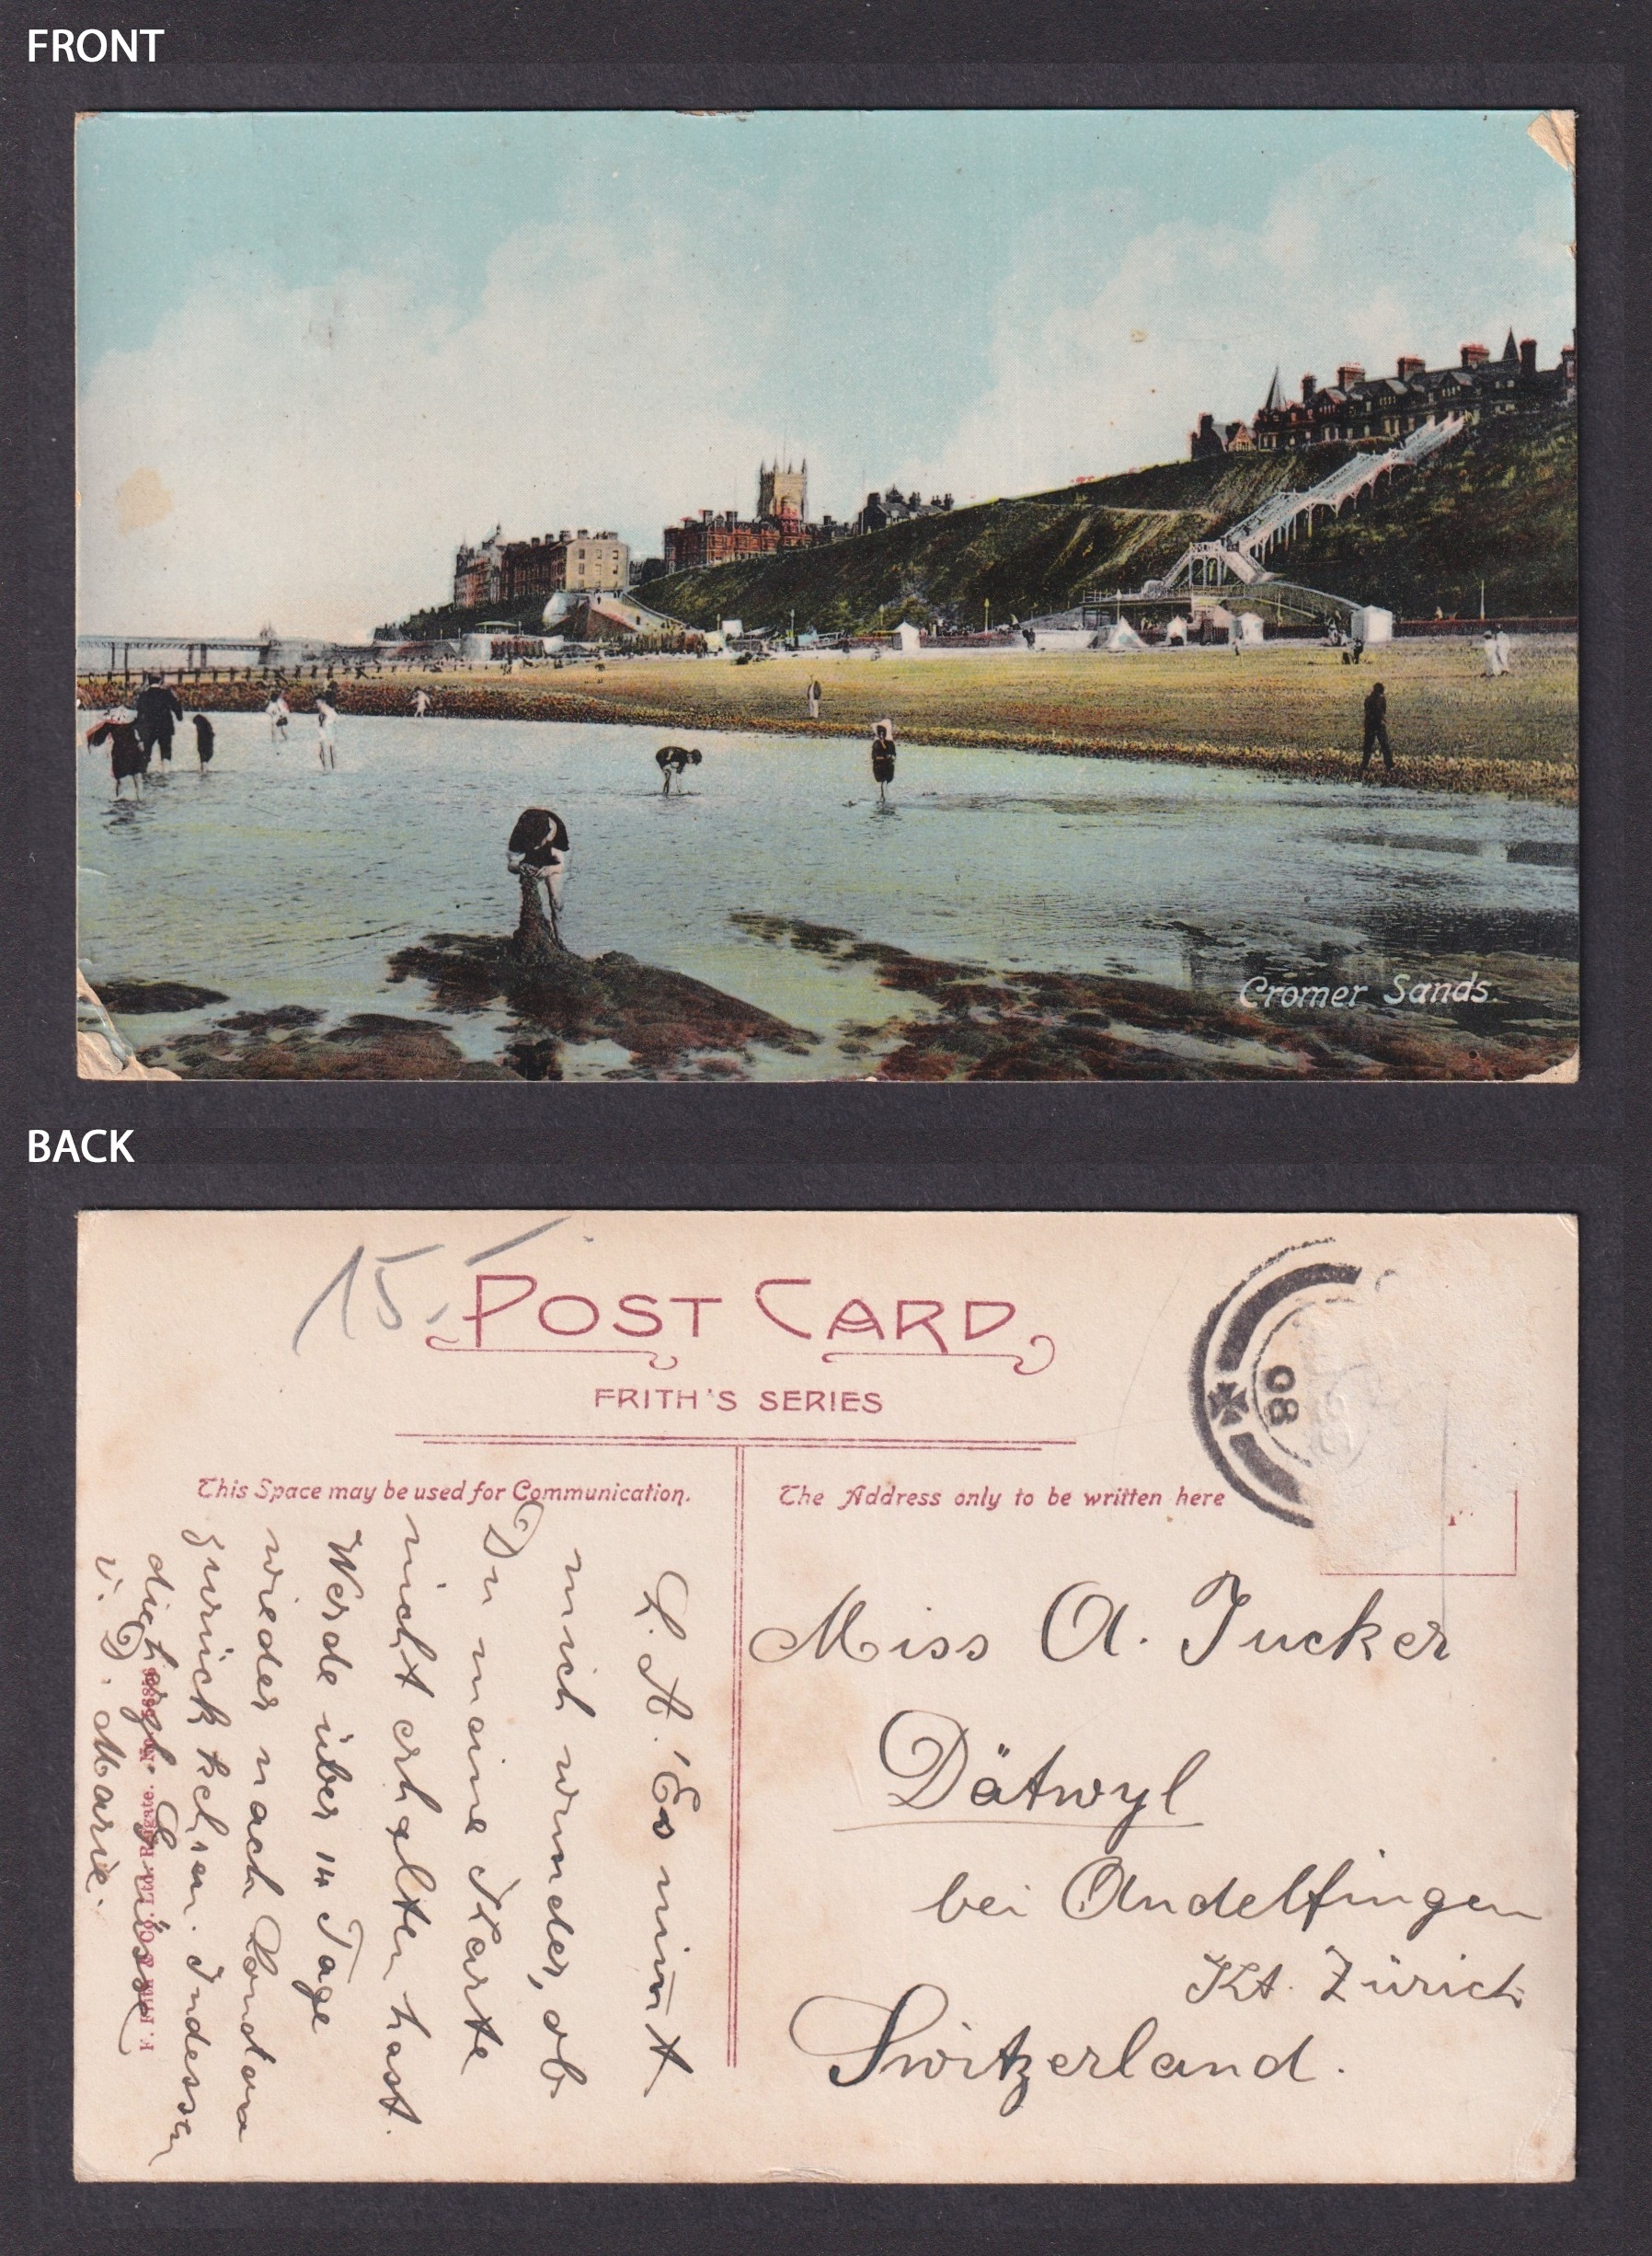 FRONT
Cromer Sands.
BACK
15.-
POST CARD
FRITH'S SERIES
This Space may be used for Communication.
The Address only to be written here
08
L. A. Es nimmt
mich wunder, ob
Du meine Karte
nicht erhalten hast.
Werde über 14 Tage
wieder nach London
zurückkehren. Indessen
die herzl. Grüsse
v. D. Marie.
Miss A. Jucker
Dätwyl
bei Andelfingen
Kt. Zürich
Switzerland.
F. Frith & Co. Ltd. Reigate. No.